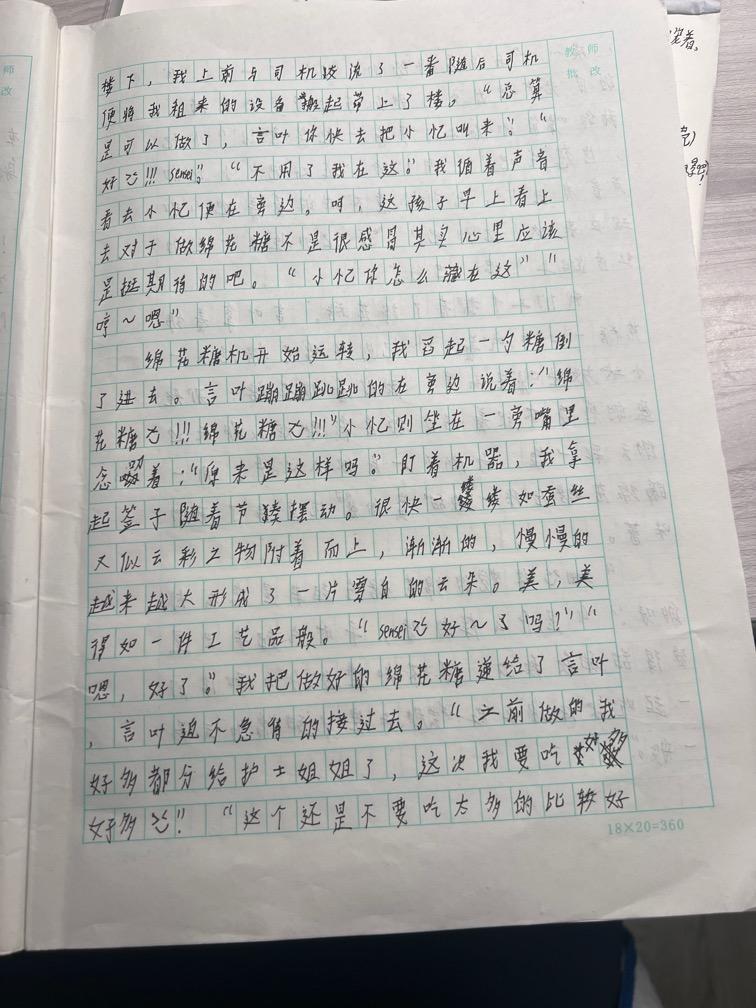 楼下，我上前与司机交流了一番随后司机
便将我租来的设备搬起带上了楼。“总算
是可以做了，言叶你快去把小忆叫来”。“
好~!!! sensei”。“不用了我在这。”我循着声音
看去小忆便在旁边。呵，这孩子早上看上
去对于做绵花糖不是很感冒其实心里应该
是挺期待的吧。“小忆你怎么藏在这”“
哼～嗯”
绵花糖机开始运转，我舀起一勺糖倒
了进去。言叶蹦蹦跳跳的在旁边说着：“绵
花糖~!!!绵花糖~!!!”小忆则坐在一旁嘴里
念叨着：“原来是这样吗。”盯着机器，我拿
起签子随着节揍摆动。很快一缕缕如蚕丝
又似云彩之物附着而上，渐渐的，慢慢的
越来越大形成了一片雪白的云朵。美，美
得如一件工艺品般。“sensei~好～了吗？”“
嗯，好了。”我把做好的绵花糖递给了言叶
，言叶迫不急待的接过去。“之前做的我
好多都分给护士姐姐了，这次我要吃好多
好多~！”“这个还是不要吃太多的比较好
18×20=360
教师
批改
师
改